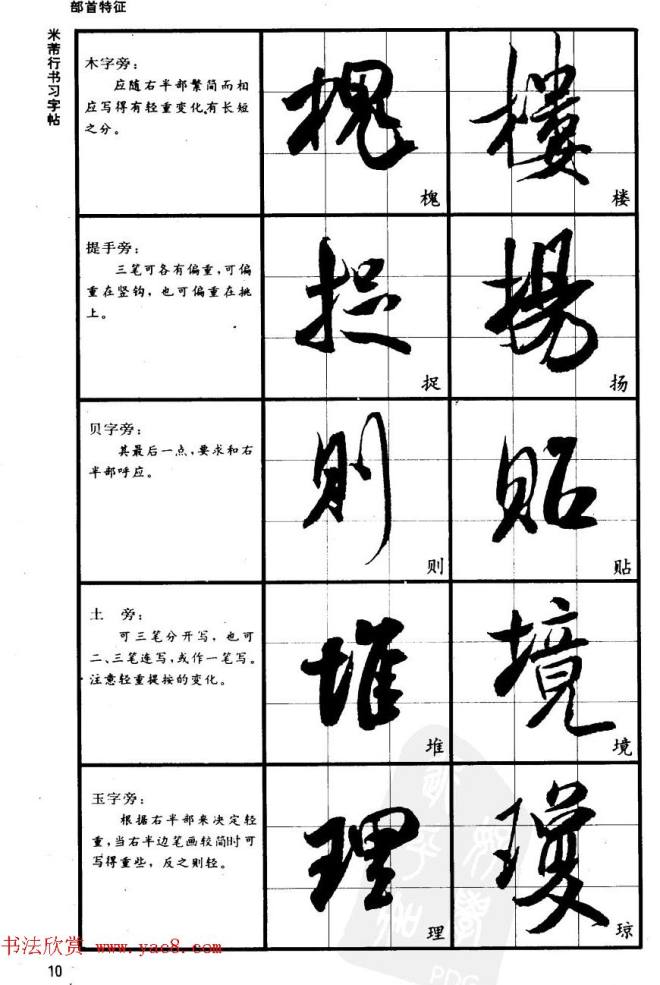 部首特征
米芾行书习字帖
木字旁：
应随右半部繁简而相
应写得有轻重变化、有长短
之分。
槐
樓
槐
楼
提手旁：
三笔可各有偏重，可偏
重在竖钩，也可偏重在挑
上。
捉
揚
捉
扬
贝字旁：
其最后一点，要求和右
半部呼应。
則
貼
则
贴
土 旁：
可三笔分开写，也可
二、三笔连写，或作一笔写。
注意轻重提按的变化。
堆
境
堆
境
玉字旁：
根据右半部来决定轻
重，当右半边笔画较简时可
写得重些，反之则轻。
理
瓊
理
琼
书法欣赏 www.yac8.com
10
PDG